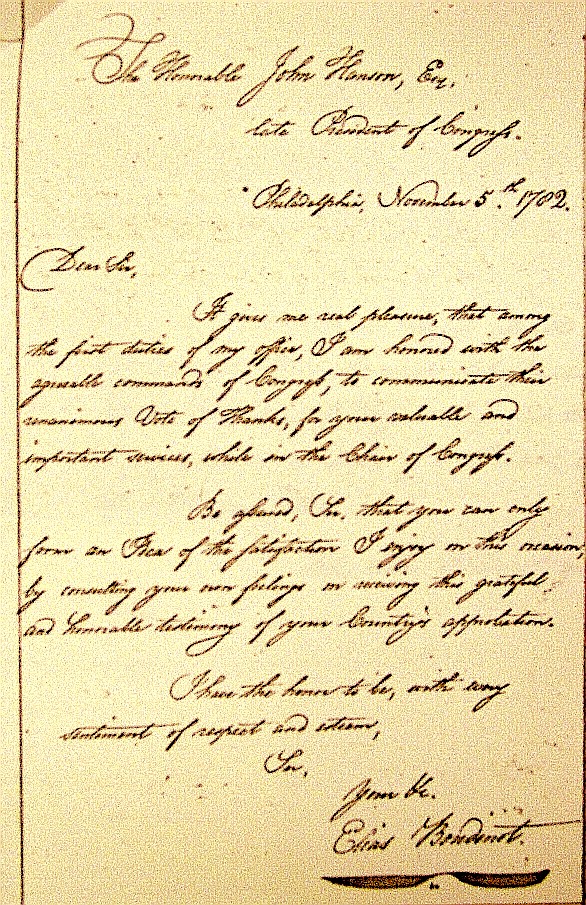 The Honorable John Hanson, Esq.
late President of Congress.
Philadelphia, November 5.th 1782.
Dear Sir,
It gives me real pleasure, that among
the first duties of my office, I am honored with the
agreeable commands of Congress, to communicate their
unanimous Vote of Thanks, for your valuable and
important services, while in the Chair of Congress.
Be assured, Sir, that you can only
form an Idea of the satisfaction I enjoy on this occasion,
by consulting your own feelings on receiving this grateful
and honorable testimony of your Country's approbation.
I have the honor to be, with every
sentiment of respect and esteem,
Sir,
Your &c.
Elias Boudinot.